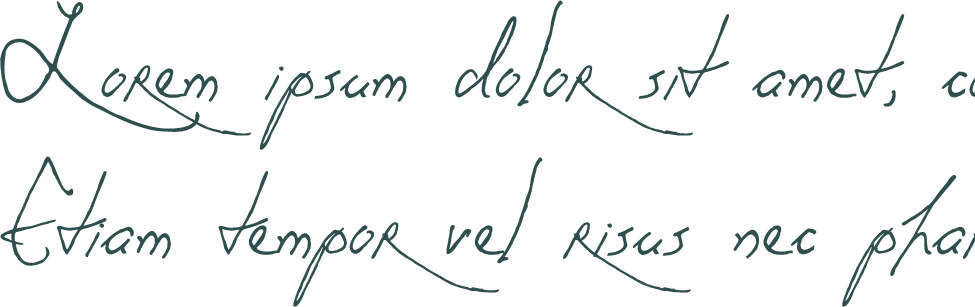 Lorem ipsum dolor sit amet, co
Etiam tempor vel risus nec phar